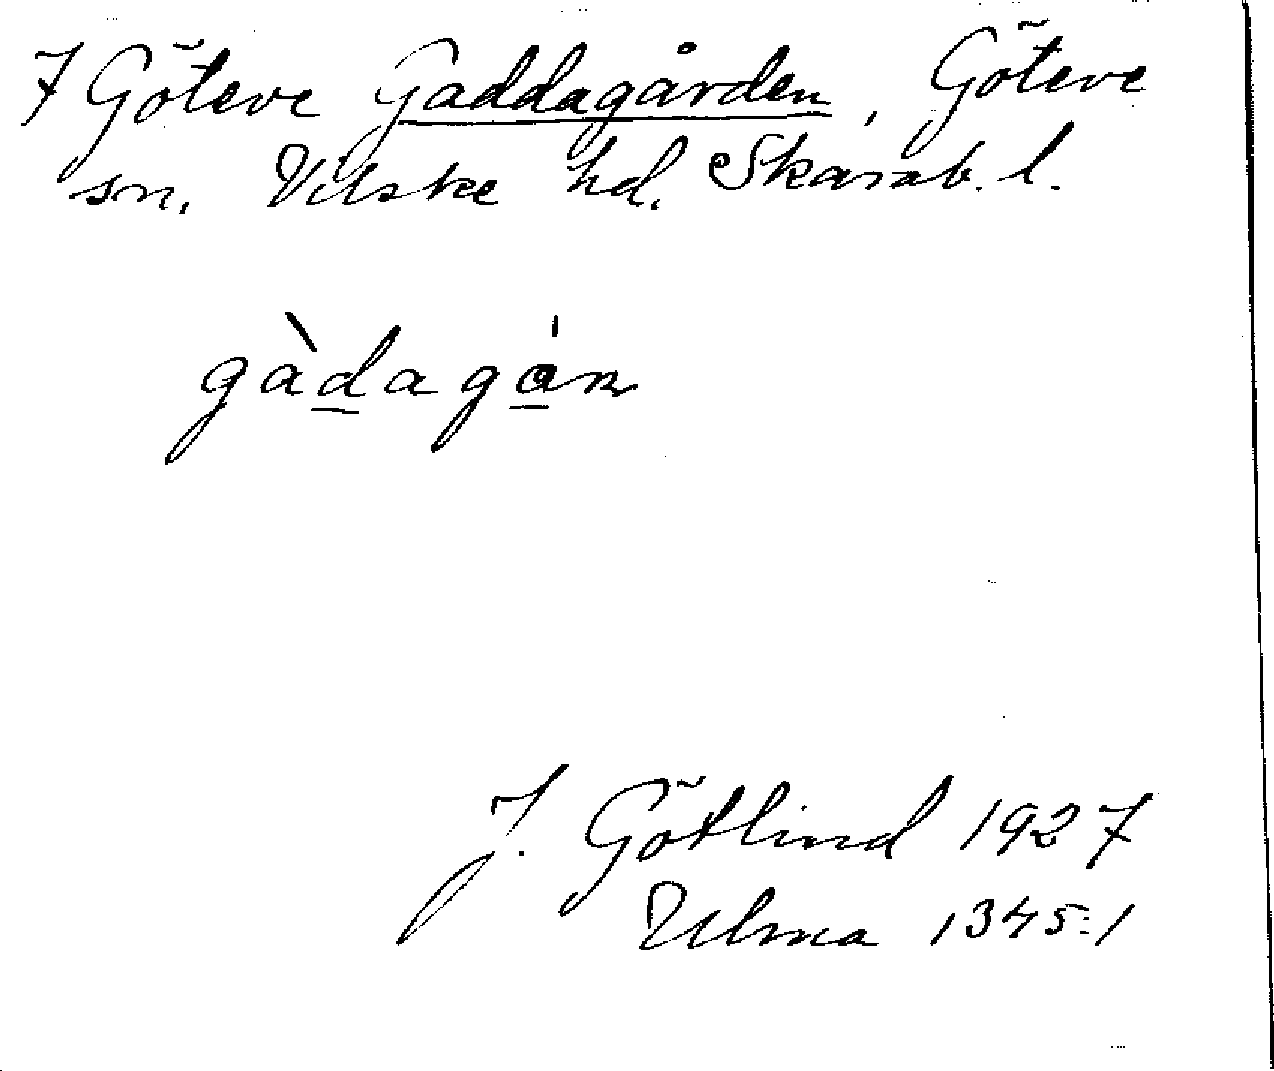 7 Göteve Gaddagården, Göteve
sn. Vilske hd. Skarab. l.
gàdagån
J. Götlind 1927
Ulma 1345:1